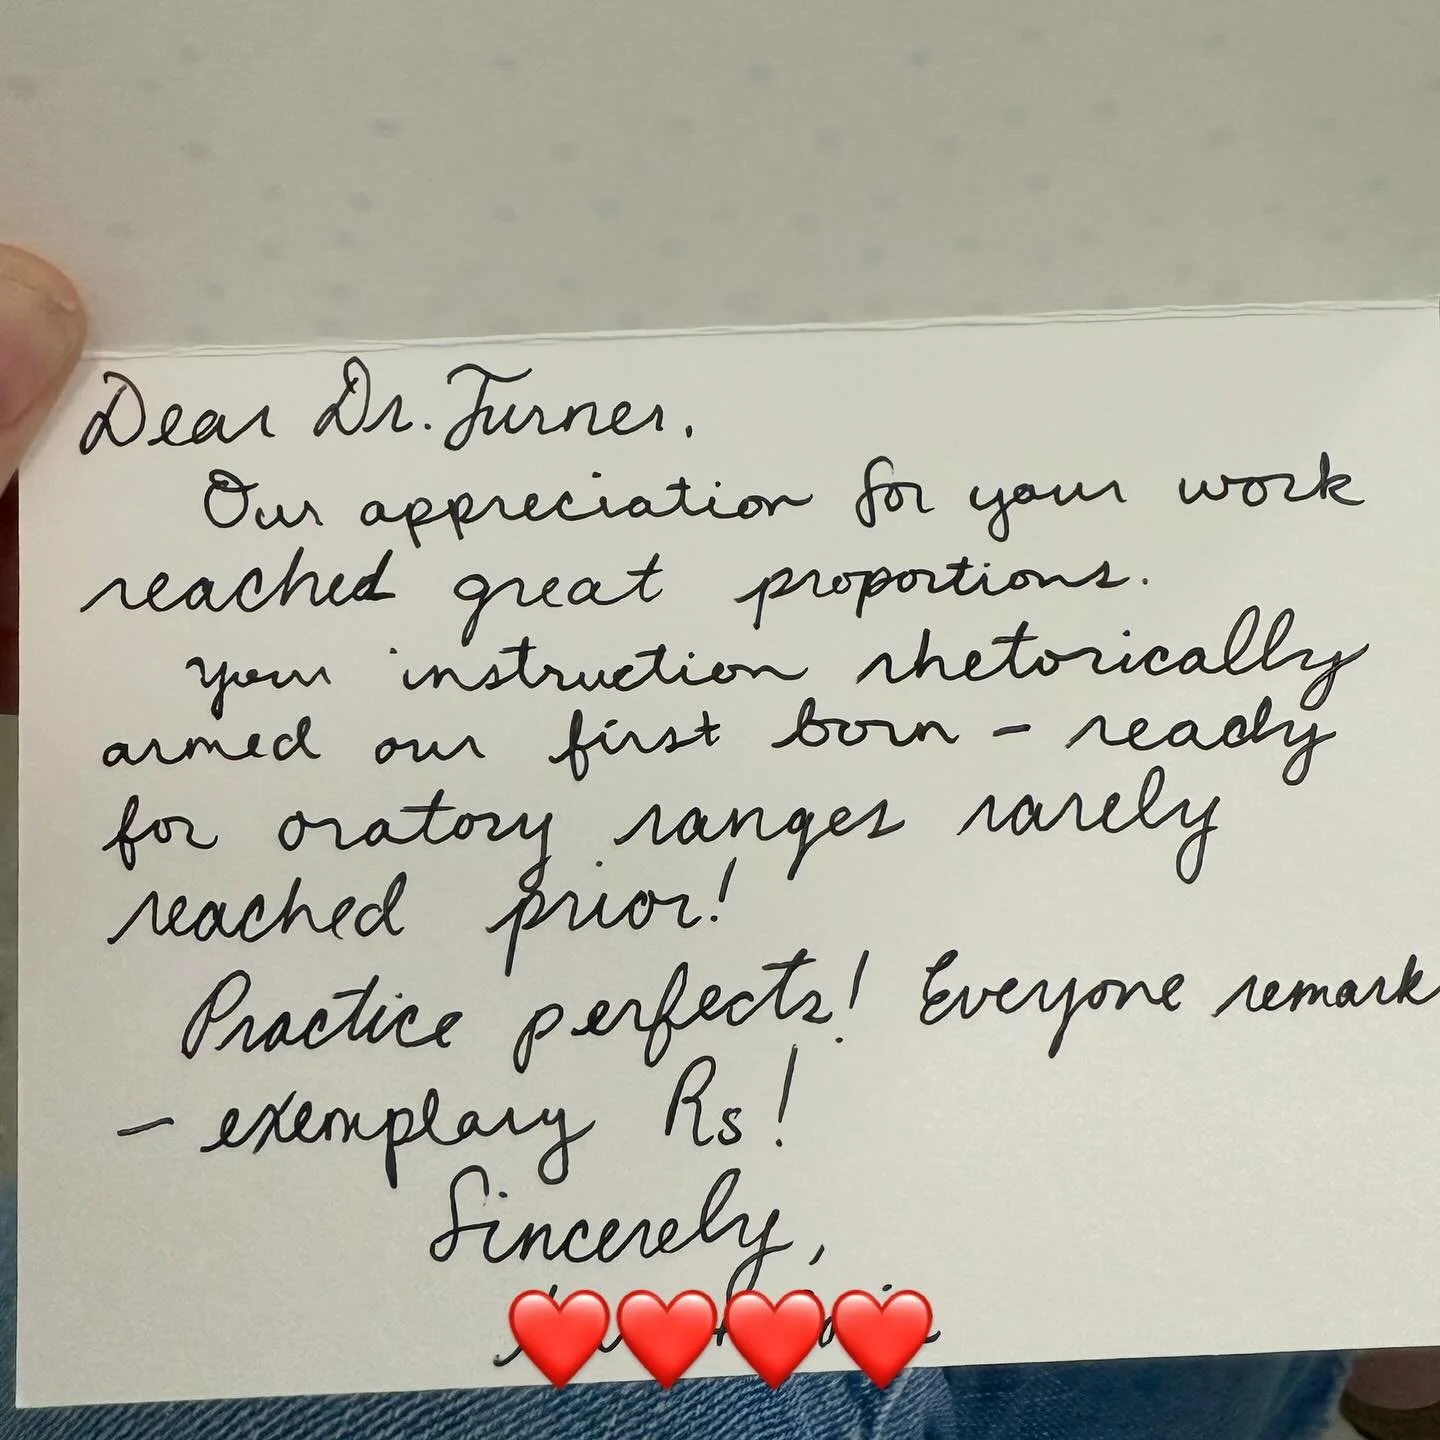 Dear Dr. Turner,
Our appreciation for your work
reached great proportions.
Your instruction rhetorically
armed our first born - ready
for oratory ranges rarely
reached prior!
Practice perfects! Everyone remark
- exemplary Rs!
Sincerely,